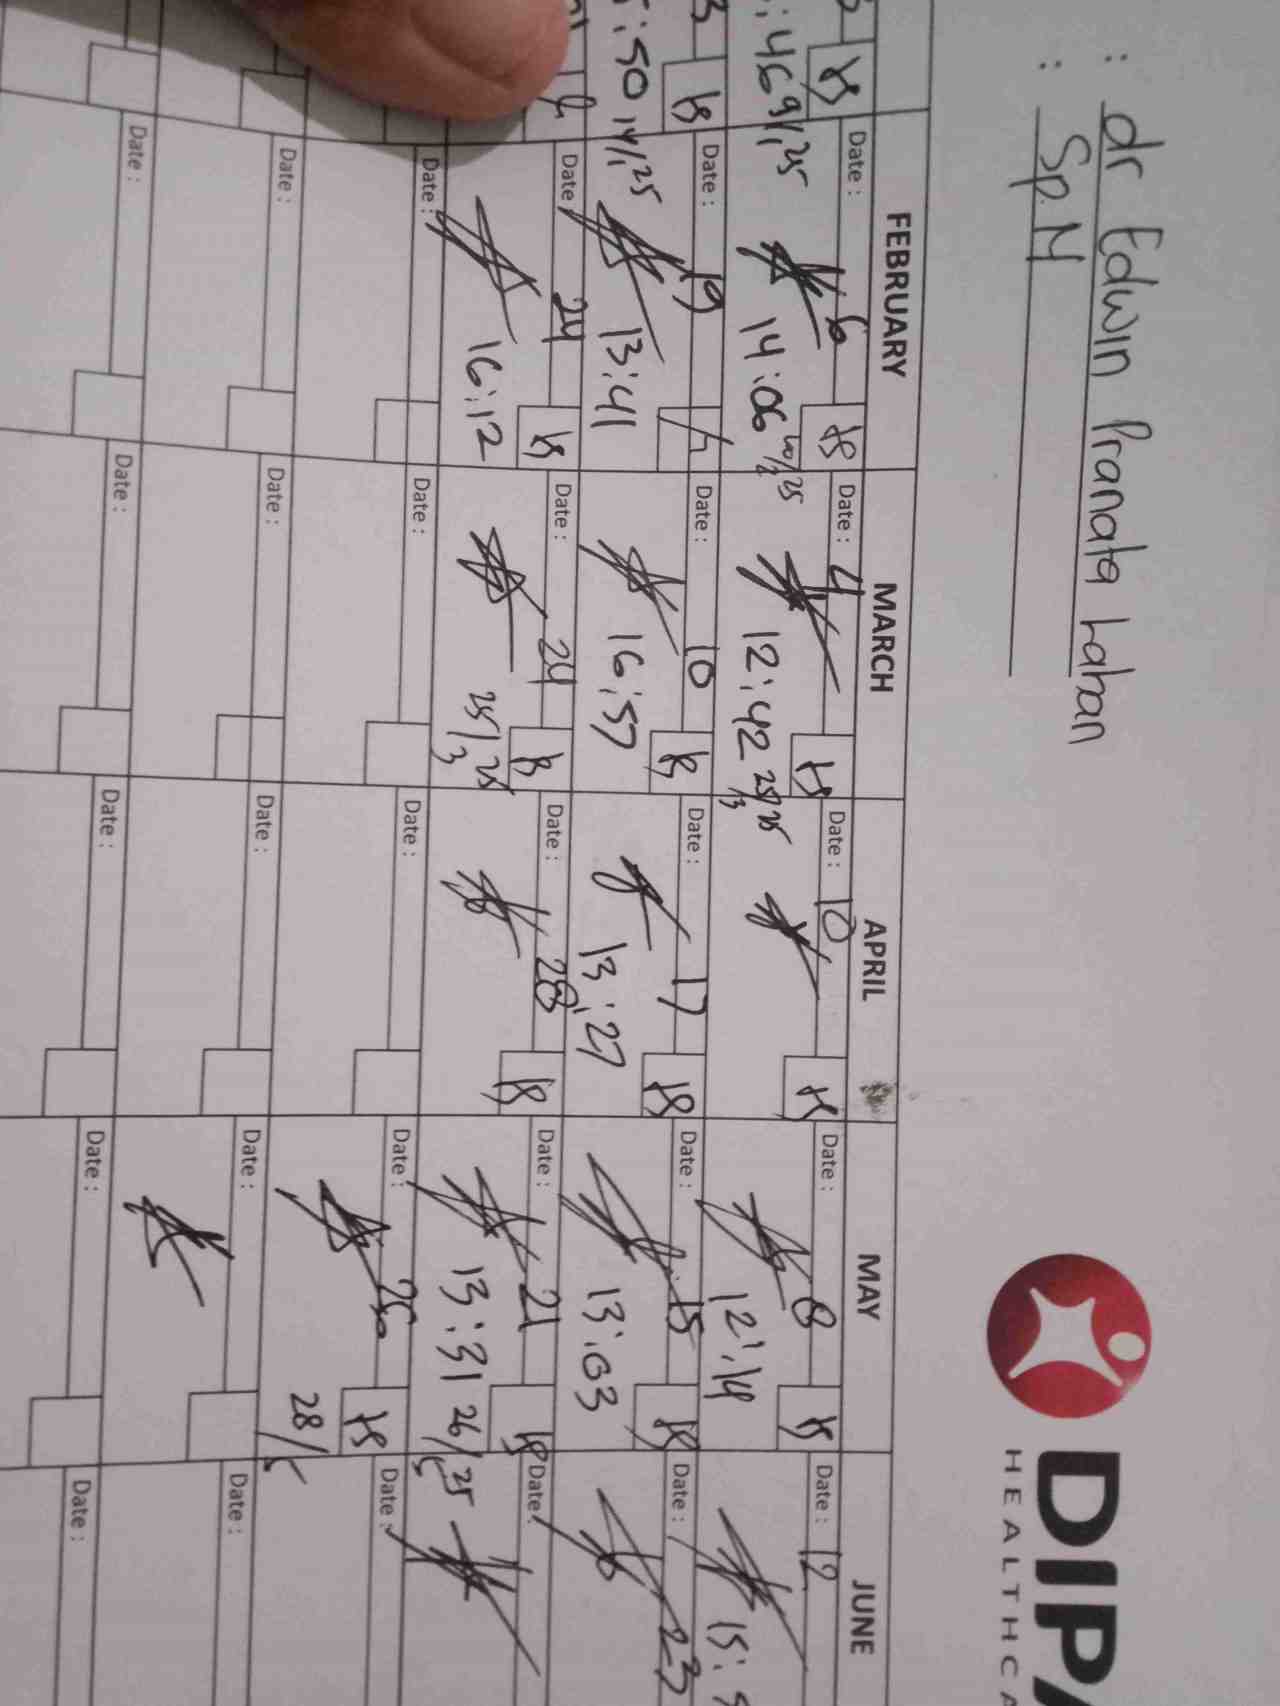 : dr Edwin Pranata Laban
: Sp. M
DIPA
HEALTHCA
FEBRUARY MARCH APRIL MAY JUNE
Date : 6 Date : 4 Date : 10 Date : 8 Date : 12
:46 9/1 25 14:06 12:42 25/3 25 12:14 15:
Date : 19 Date : 10 Date : 17 Date : 15 Date : 23
:50 14/1 25 13:41 16:57 13:27 13:03
Date : 24 Date : 24 Date : 28 Date : 21 Date :
16:12 25/3 25 13:31 26/5 25
Date : Date : Date : Date : 26 Date :
28/5
Date : Date : Date : Date : Date :
Date : Date : Date : Date : Date :